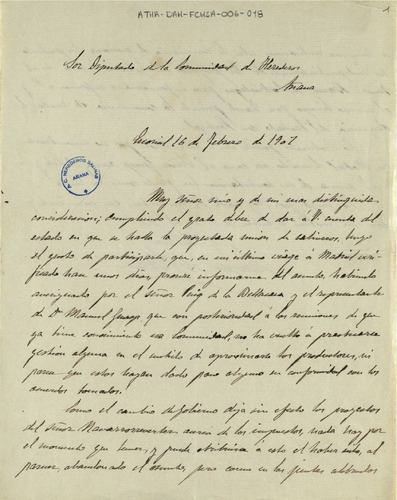 ATHA-DAH-FCMSA-006-018
1
Sor Diputado de la Comunidad de Herederos
Añana
Escorial 16 de Febrero de 1907
A.C. HEREDEROS SALINAS
AÑANA
Muy Señor mio y de mi mas distinguida
consideracion; cumpliendo el grato deber de dar á V. cuenta del
estado en que se halla la proyectada union de salineros, tengo
el gusto de participarle que, en mi último viage á Madrid veri-
ficado hace unos dias, procuré informarme del asunto, habiendo
averiguado por el Señor Puig de la Bellacasa y el representante
de Dn Manuel que con posterioridad á las reuniones, de que
ya tiene conocimiento esa Comunidad, no ha vuelto á practicarse
gestion alguna en el sentido de aproximarse los productores, ni
parece que estos hayan dado paso alguno en conformidad con los
acuerdos tomados.
Como el cambio de Gobierno dejó sin efecto los proyectos
del Señor Navarrorreverter acerca de los impuestos, nada hay por
el momento que temer, y puede atribuirse á esto el haber sido, al
parecer, abandonado el asunto, pero como en las juntas celebradas